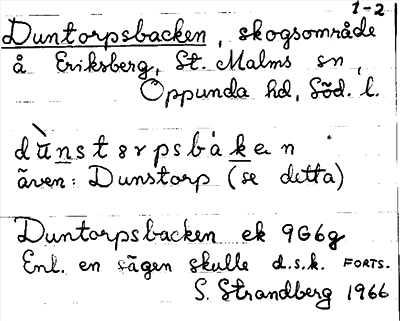 1-2
Duntorpsbacken, skogsområde
å Eriksberg, St. Malms sn,
Oppunda hd, Söd. l.
dùnstərpsbàken
även: Dunstorp (se detta)
Duntorpsbacken ek 9G6g
Enl. en sägen skulle d.s.k. FORTS.
S. Strandberg 1966